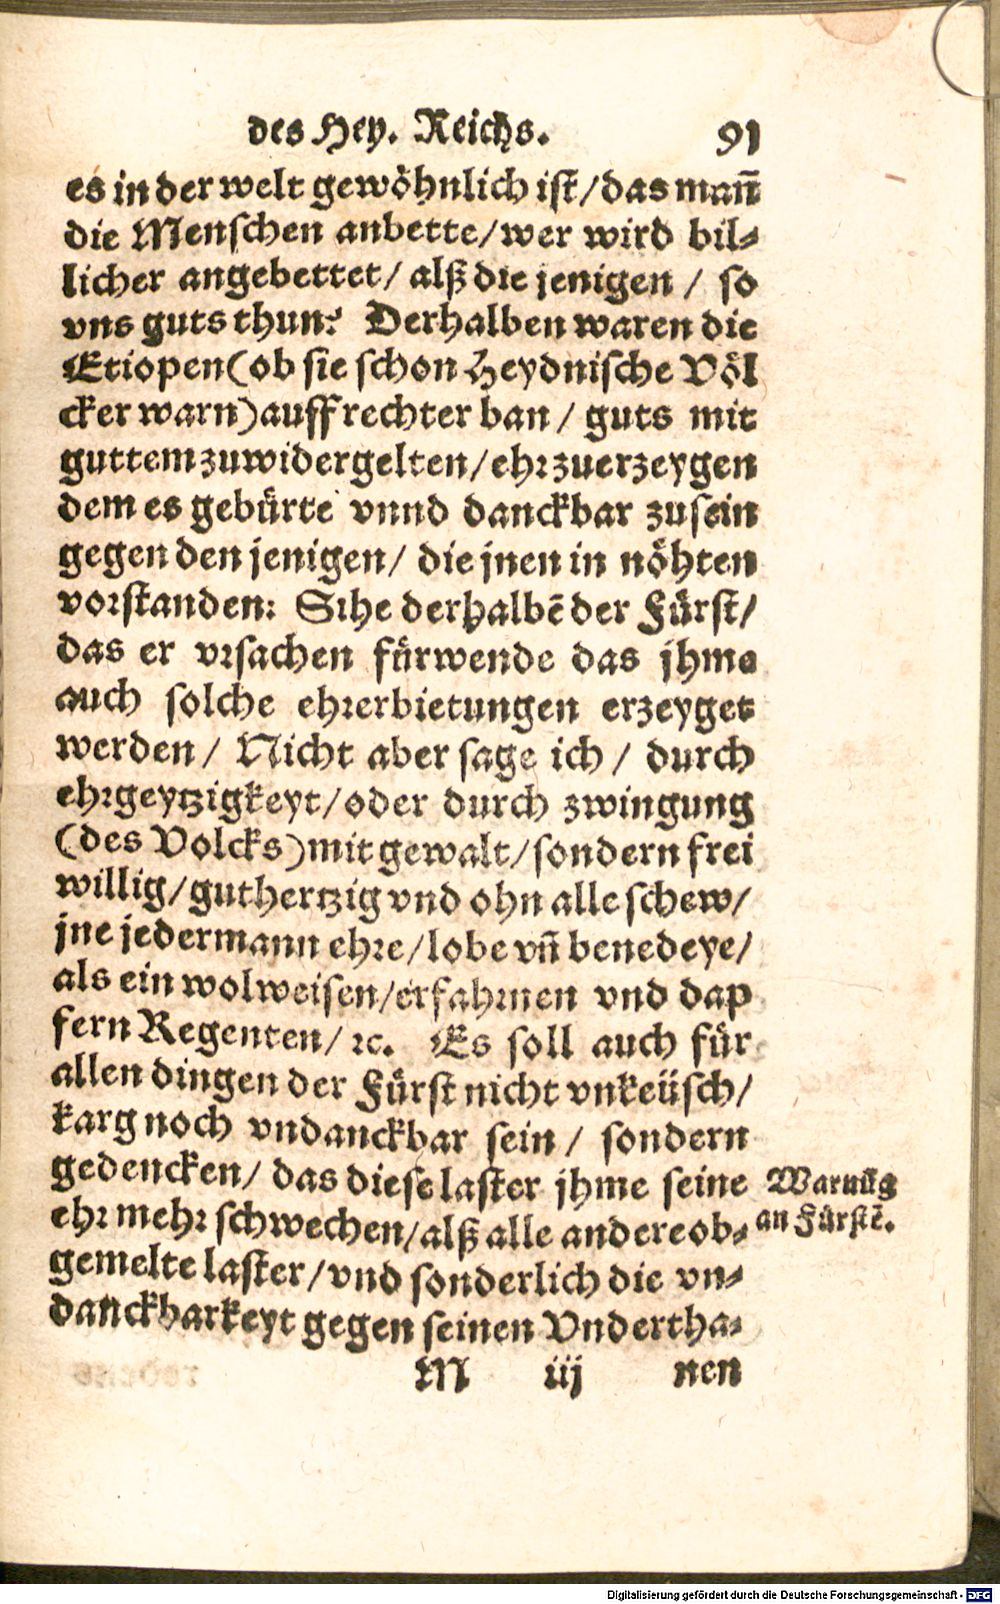 des Hey. Reichs. 91
es in der welt gewöhnlich ist/das mañ
die Menschen anbette/wer wird bil⸗
licher angebettet/ alß die jenigen / so
vns guts thun? Derhalben waren die
Etiopen(ob sie schon Heydnische Völ
cker warn)auff rechter ban / guts mit
guttem zuwidergelten/ehr zuerzeygen
dem es gebürte vnnd danckbar zusein
gegen den jenigen/ die jnen in nöhten
vorstanden: Sihe derhalbē der Fürst/
das er vrsachen fürwende das jhme
auch solche ehrerbietungen erzeyget
werden / Nicht aber sage ich / durch
ehrgeytzigkeyt/oder durch zwingung
(des Volcks)mit gewalt/sondern frei
willig/guthertzig vnd ohn alle schew/
jne jedermann ehre/lobe vñ benedeye/
als ein wolweisen/erfahrnen vnd dap
fern Regenten/ ꝛc. Es soll auch für
allen dingen der Fürst nicht vnkeüsch/
karg noch vndanckbar sein / sondern
gedencken/ das diese laster jhme seine
ehr mehr schwechen/alß alle andere ob⸗
gemelte laster/vnd sonderlich die vn⸗
danckbarkeyt gegen seinen Vndertha⸗
M iij nen
Warnūg
an Fürstē.
Digitalisierung gefördert durch die Deutsche Forschungsgemeinschaft - DFG